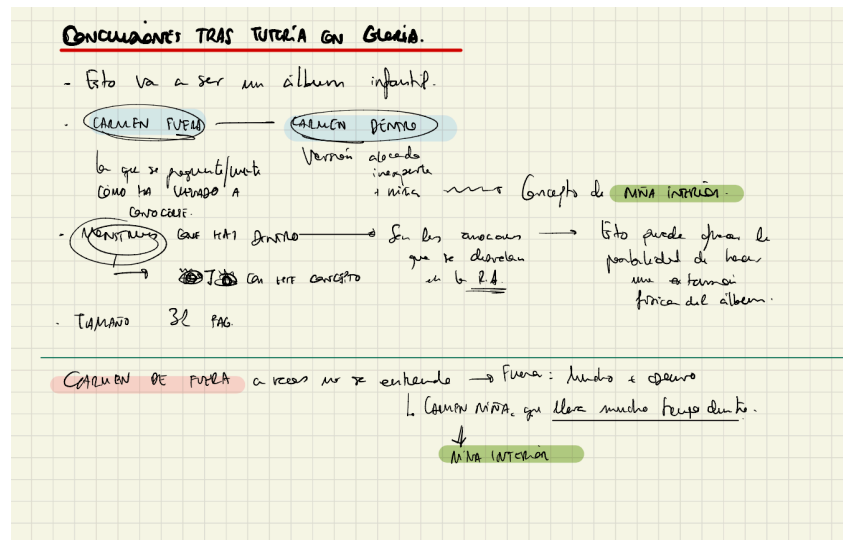 CONCLUSIONES TRAS TUTORÍA CON GLORIA.
- Esto va a ser un álbum infantil.
- CARMEN FUERA — CARMEN DENTRO
la que se pregunta/cuenta
CÓMO HA LLEGADO A
CONOCERSE.
Versión alocada
inexperta
+ niña → Concepto de NIÑA INTERIOR.
- MONSTRUOS QUE HAY DENTRO → Son las emociones → Esto puede
que se desvelan
en la RA.
posibilidad de hacer
una
física del álbum.
→ CON ESTE CONCEPTO
- TAMAÑO 32 PAG.
CARMEN DE FUERA a veces no se entiende → Fuera: Mundo + oscuro
CARMEN NIÑA, que lleva mucho tiempo dentro.
↓
NIÑA INTERIOR